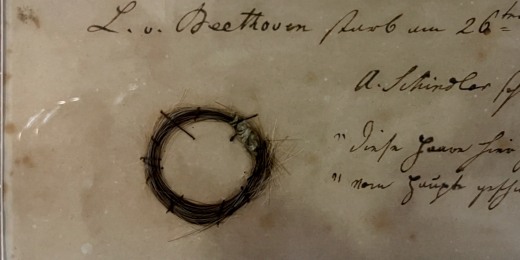 L. v. Beethoven starb am 26ten
A. Schindler
" Diese Haare hier
" vom Haupte